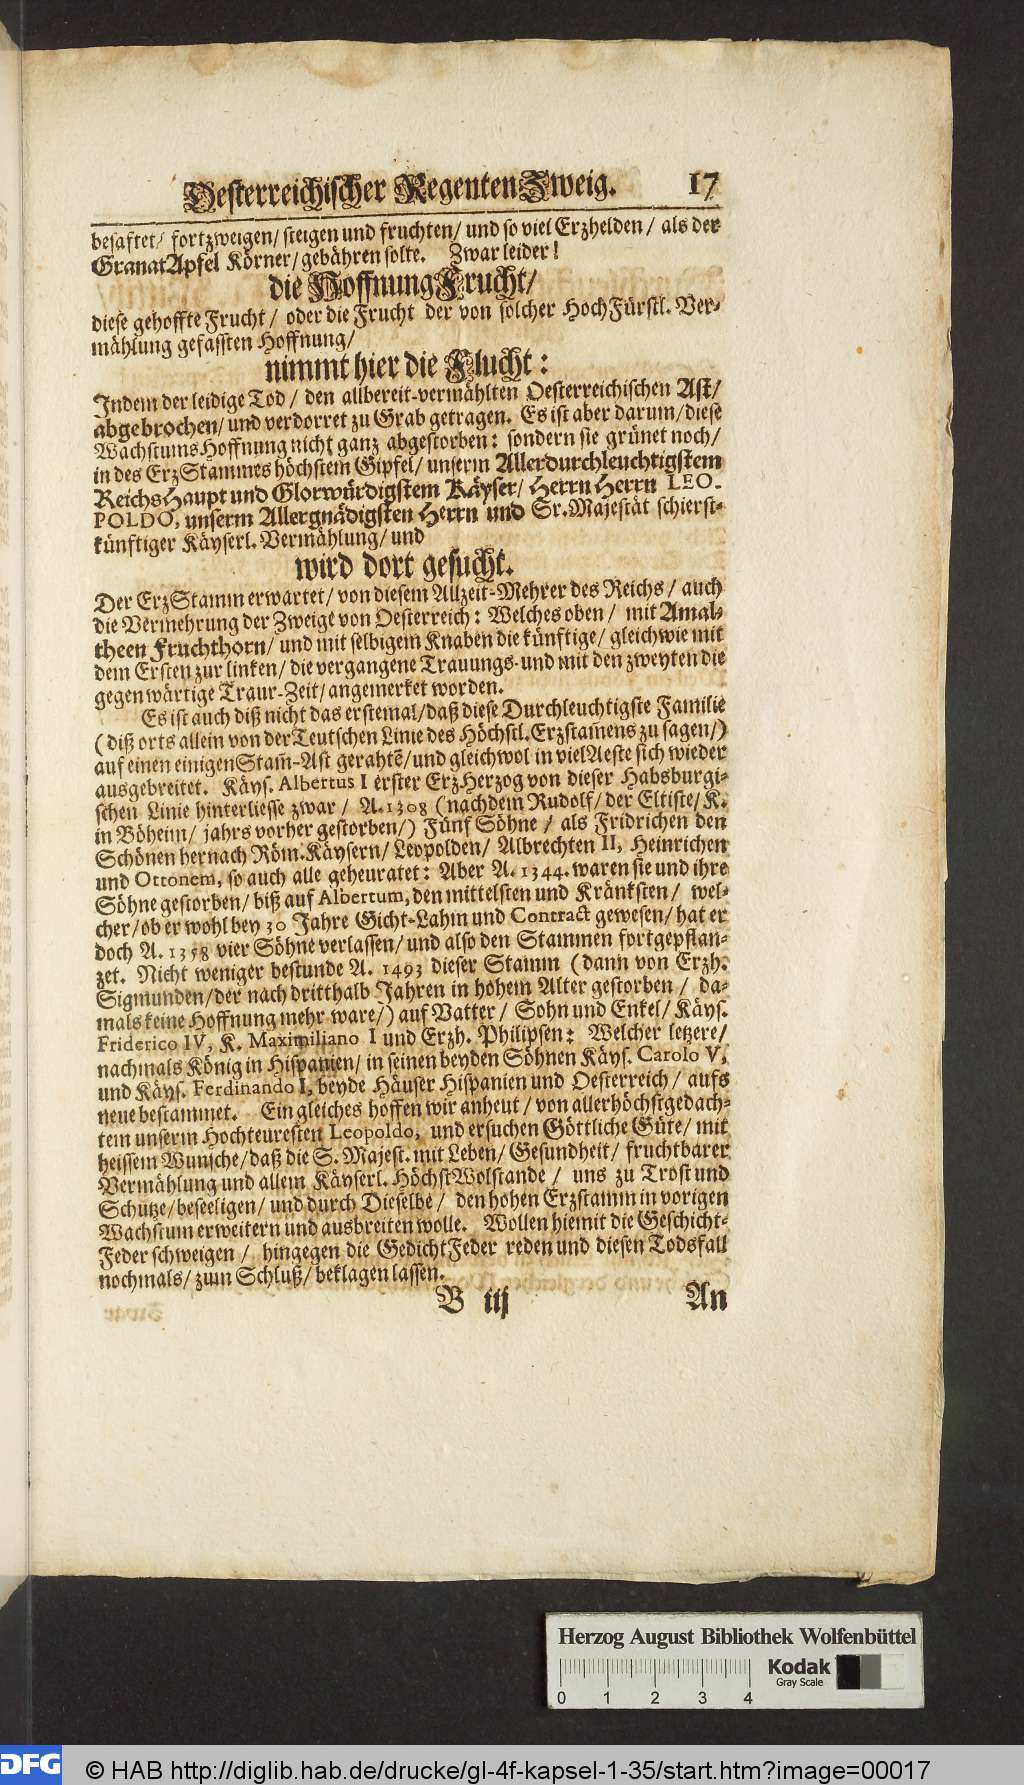 Oesterreichischer RegentenZweig. 17
besaftet/ fortzweigen/ steigen und fruchten/ und so viel Erzhelden/ als der
GranatApfel Körner/ gebähren solte. Zwar leider!
die HoffnungFrucht/
diese gehoffte Frucht/ oder die Frucht der von solcher HochFürstl. Ver-
mählung gefassten Hoffnung/
nimmt hier die Flucht:
Indem der leidige Tod/ den allbereit-vermählten Oesterreichischen Ast/
abgebrochen/ und verdorret zu Grab getragen. Es ist aber darum/ diese
WachstumsHoffnung nicht ganz abgestorben: sondern sie grünet noch/
in des ErzStammes höchstem Gipfel/ unserm Allerdurchleuchtigstem
ReichsHaupt und Glorwürdigstem Käyser/ Herrn Herrn LEO-
POLDO, unserm Allergnädigsten Herrn und Sr. Majestät schierst-
künftiger Käyserl. Vermählung/ und
wird dort gesucht.
Der ErzStamm erwartet/ von diesem Allzeit-Mehrer des Reichs/ auch
die Vermehrung der Zweige von Oesterreich: Welches oben/ mit Amal-
theen Fruchthorn/ und mit selbigem Knaben die künftige/ gleichwie mit
dem Ersten zur linken/ die vergangene Trauungs- und mit den zweyten die
gegenwärtige Traur-Zeit/ angemerket worden.
Es ist auch diß nicht das erstemal/ daß diese Durchleuchtigste Familie
(diß orts allein von der Teutschen Linie des Höchstl. Erzstam̃ens zu sagen/)
auf einen einigen Stam̃-Ast gerahtẽ/ und gleichwol in viel Aeste sich wieder
ausgebreitet. Käys. Albertus I erster ErzHerzog von dieser Habsburgi-
schen Linie hinterliesse zwar/ A. 1308 (nachdem Rudolf/ der Eltiste/ K.
in Böheim/ jahrs vorher gestorben/) Fünf Söhne/ als Fridrichen den
Schönen hernach Röm. Käysern/ Leopolden/ Albrechten II, Heinrichen
und Ottonem, so auch alle geheuratet: Aber A. 1344. waren sie und ihre
Söhne gestorben/ biß auf Albertum, den mittelsten und Kränksten/ wel-
cher/ ob er wohl bey 30 Jahre Gicht-Lahm und Contract gewesen/ hat er
doch A. 1358 vier Söhne verlassen/ und also den Stammen fortgepflan-
zet. Nicht weniger bestunde A. 1493 dieser Stamm (dann von Erzh.
Sigmunden/ der nach dritthalb Jahren in hohem Alter gestorben/ da-
mals keine Hoffnung mehr ware/) auf Vatter/ Sohn und Enkel/ Käys.
Friderico IV, K. Maximiliano I und Erzh. Philipsen: Welcher letzere/
nachmals König in Hispanien/ in seinen beyden Söhnen Käys. Carolo V,
und Käys. Ferdinando I, beyde Häuser Hispanien und Oesterreich/ aufs
neue bestammet. Ein gleiches hoffen wir anheut/ von allerhöchstgedach-
tem unserm Hochteuresten Leopoldo, und ersuchen Göttliche Güte/ mit
heissem Wunsche/ daß die S. Majest. mit Leben/ Gesundheit/ fruchtbarer
Vermählung und allem Käyserl. HöchstWolstande/ uns zu Trost und
Schutze/ beseeligen/ und durch Dieselbe/ den hohen Erzstamm in vorigen
Wachstum erweitern und ausbreiten wolle. Wollen hiemit die Geschicht-
Feder schweigen/ hingegen die GedichtFeder reden und diesen Todsfall
nochmals/ zum Schluß/ beklagen lassen.
B iij An
Herzog August Bibliothek Wolfenbüttel
Kodak
Gray Scale
0 1 2 3 4
DFG © HAB http://diglib.hab.de/drucke/gl-4f-kapsel-1-35/start.htm?image=00017